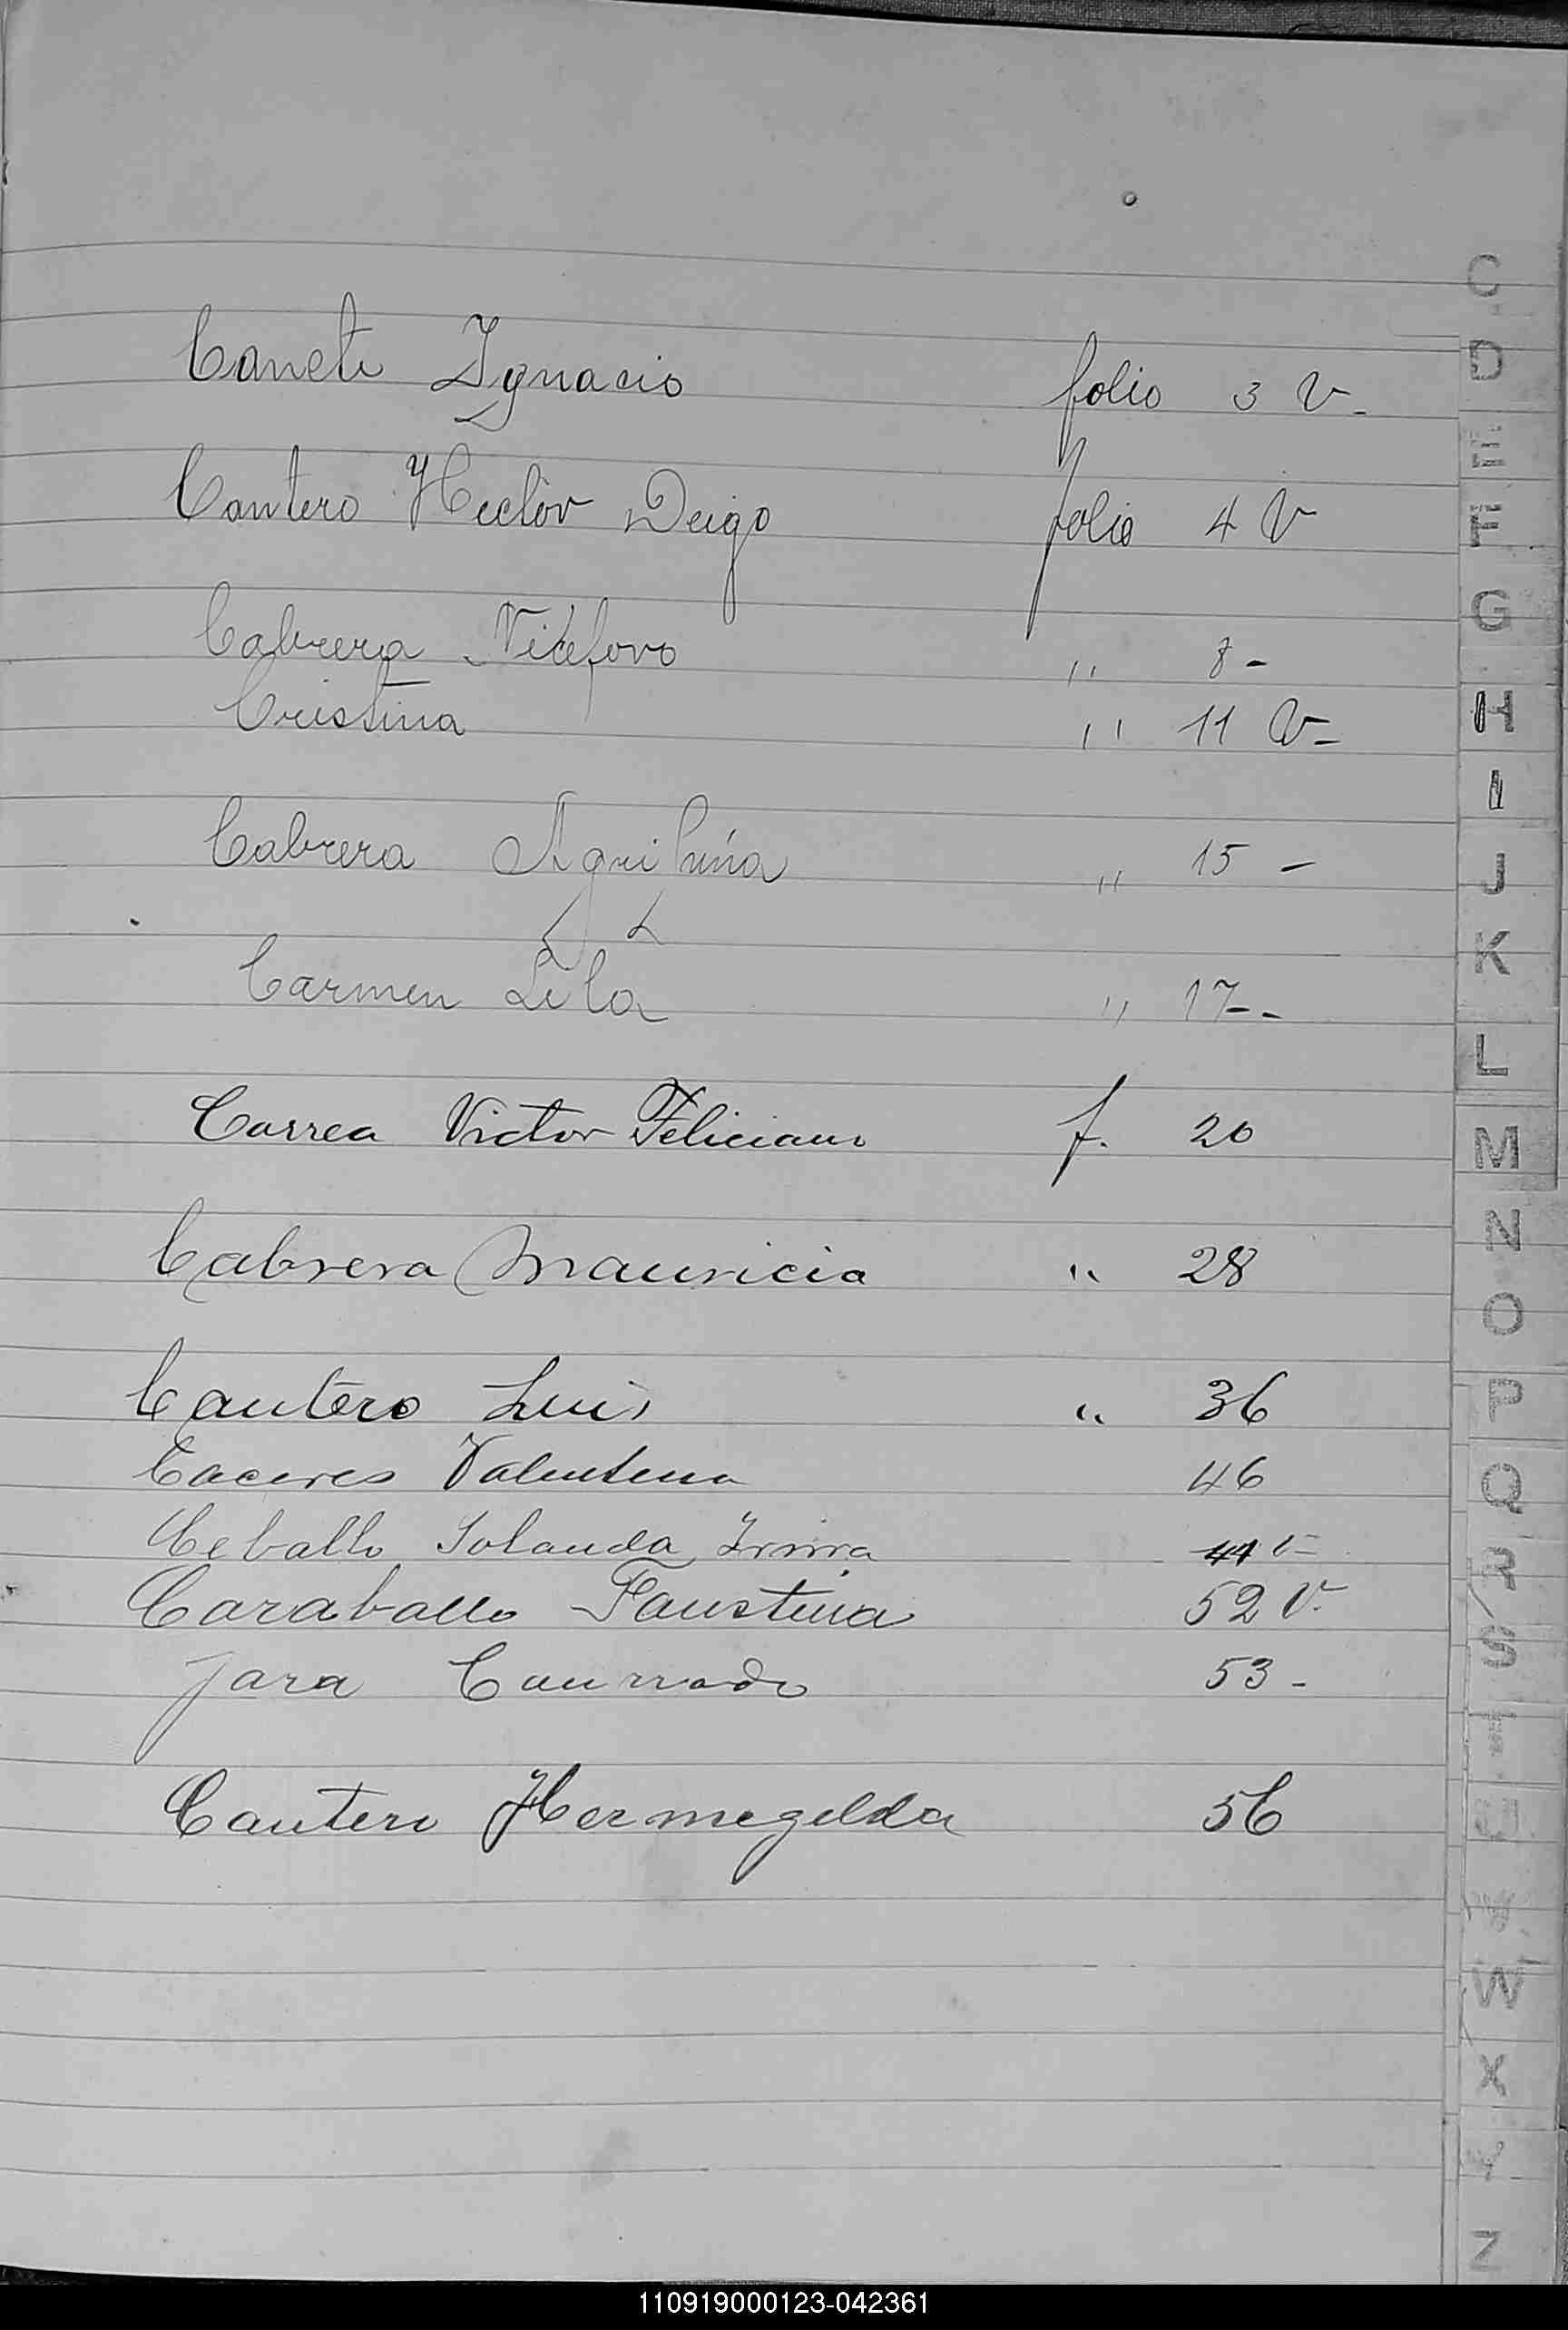 Canete Ygnacio folio 3 V-
Cantero Hector Deigo folio 4 V
Cabrera Niceforo " 8-
Cristina " 11 V-
Cabrera Aquilina " 15-
Carmen Lila " 17--
Correa Victor Feliciano f. 20
Cabrera Mauricia " 28
Cantero Luis " 36
Caceres Valentina 46
Ceballo Yolanda Irma 44 V-
Caraballo Faustina 52 V-
Jara Counrado 53-
Cantero Hermegelda 56
C
D
E
F
G
H
I
J
K
L
M
N
O
P
Q
R
S
T
U
V
W
X
Y
Z
110919000123-042361